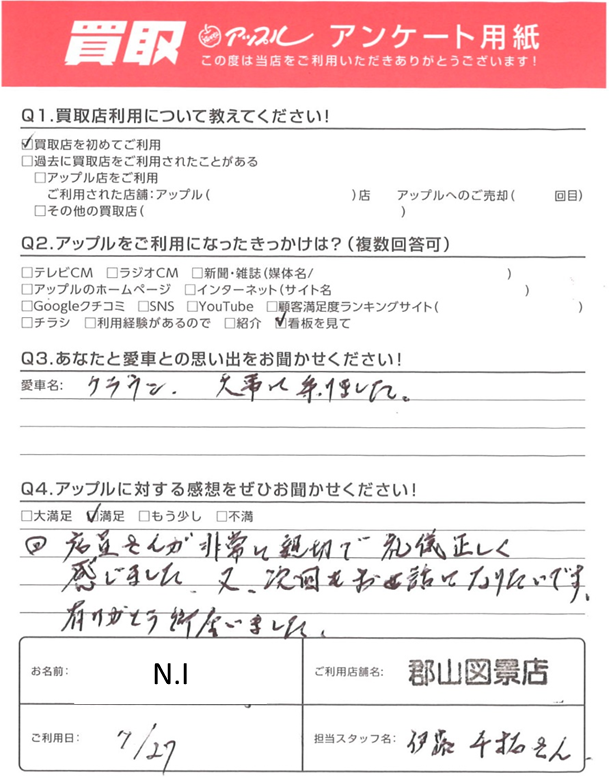 買取 アップル アンケート用紙
この度は当店をご利用いただきありがとうございます!
Q1.買取店利用について教えてください!
☑買取店を初めてご利用
□過去に買取店をご利用されたことがある
□アップル店をご利用
ご利用された店舗:アップル( )店 アップルへのご売却( 回目)
□その他の買取店( )
Q2.アップルをご利用になったきっかけは?(複数回答可)
□テレビCM □ラジオCM □新聞・雑誌(媒体名/ )
□アップルのホームページ □インターネット(サイト名 )
□Googleクチコミ □SNS □YouTube □顧客満足度ランキングサイト( )
□チラシ □利用経験があるので □紹介 ☑看板を見て
Q3.あなたと愛車との思い出をお聞かせください!
愛車名: クラウン. 大事に乗りました。
Q4.アップルに対する感想をぜひお聞かせください!
□大満足 ☑満足 □もう少し □不満
店員さんが非常に親切で礼儀正しく
感じました、又、次回もお世話になりたいです。
有りがとう御座いました。
お名前: N.I ご利用店舗名: 郡山図景店
ご利用日: 7/27 担当スタッフ名: 伊藤 千拓さん